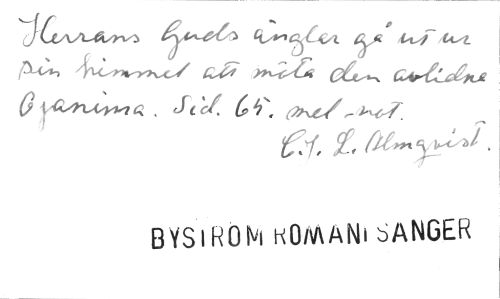 Herrans Guds änglar gå ut ur
sin himmel att möta den avlidna
Ojanima. Sid. 65. mel-not.
C.J.L. Almqvist.
BYSTRÖM ROMANI SÅNGER